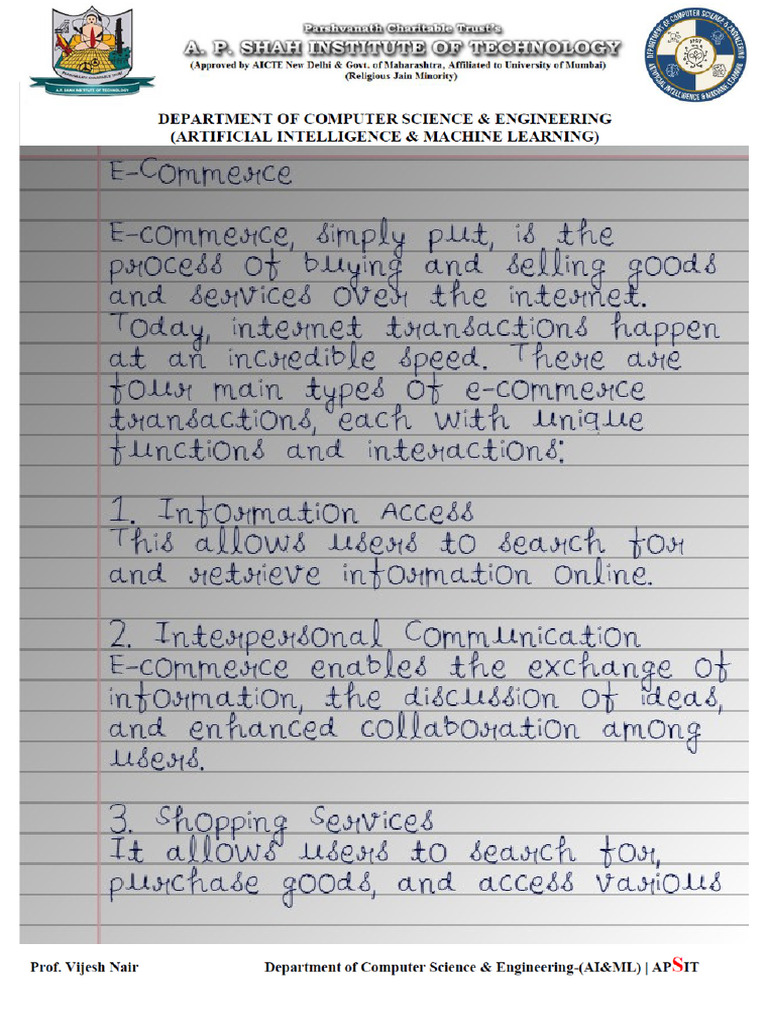 Parshvanath Charitable Trust's
A. P. SHAH INSTITUTE OF TECHNOLOGY
(Approved by AICTE New Delhi & Govt. of Maharashtra, Affiliated to University of Mumbai)
(Religious Jain Minority)
A.P. SHAH INSTITUTE OF TECHNOLOGY
DEPARTMENT OF COMPUTER SCIENCE & ENGINEERING
ARTIFICIAL INTELLIGENCE & MACHINE LEARNING
DEPARTMENT OF COMPUTER SCIENCE & ENGINEERING
(ARTIFICIAL INTELLIGENCE & MACHINE LEARNING)
E-Commerce
E-commerce, simply put, is the
process of buying and selling goods
and services over the internet.
Today, internet transactions happen
at an incredible speed. There are
four main types of e-commerce
transactions, each with unique
functions and interactions:
1. Information Access
This allows users to search for
and retrieve information online.
2. Interpersonal Communication
E-commerce enables the exchange of
information, the discussion of ideas,
and enhanced collaboration among
users.
3. Shopping Services
It allows users to search for,
purchase goods, and access various
Prof. Vijesh Nair Department of Computer Science & Engineering-(AI&ML) | APSIT